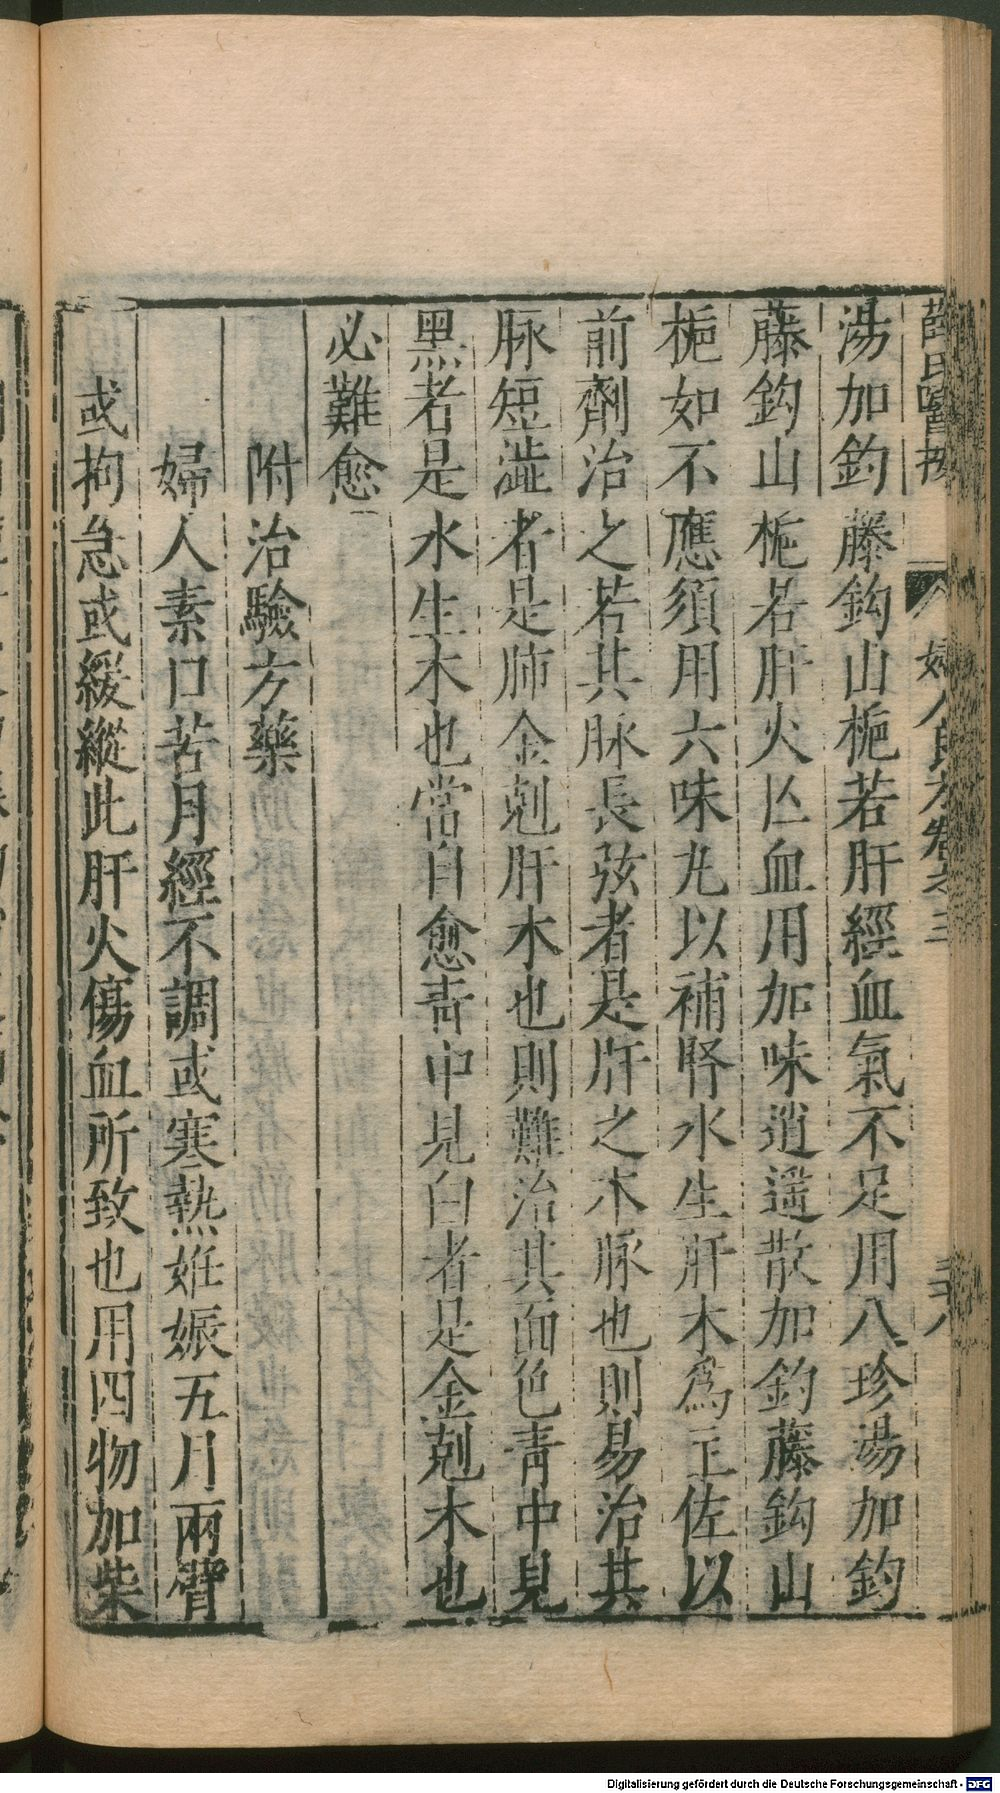 薛氏醫按 婦人良方卷之三 三十八
湯加鈎藤鈎山梔若肝經血氣不足用八珍湯加鈎
藤鈎山梔若肝火亡血用加味逍遥散加鈎藤鈎山
梔如不應須用六味丸以補腎水生肝木爲主佐以
前劑治之若其脉長弦者是肝之木脉也則易治其
脉短澁者是肺金剋肝木也則難治其面色青中見
黑者是水生木也當自愈青中見白者是金剋木也
必難愈
附治驗方藥
婦人素口苦月經不調或寒熱姙娠五月兩臂
或拘急或緩縱此肝火傷血所致也用四物加柴
Digitalisierung gefördert durch die Deutsche Forschungsgemeinschaft - DFG